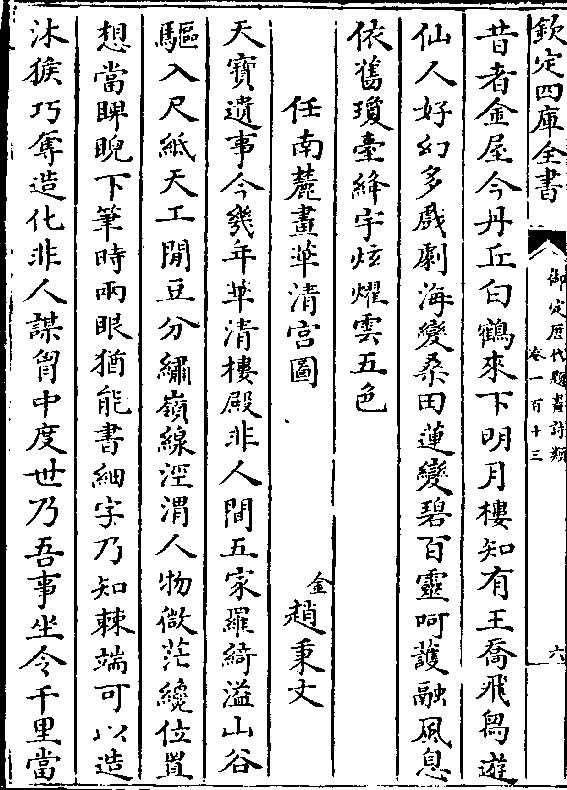 欽定四庫全書
御定歴代題畫詩類
卷一百十三
六
昔者金屋今丹丘白鶴來下明月樓知有王喬飛舄遊
仙人好幻多戲劇海變桑田蓮變碧百靈呵護融風息
依舊瓊臺絳宇炫燿雲五色
任南麓畫華清宫圖
金
趙秉文
天寶遺事今幾年華清樓殿非人間五家羅綺溢山谷
驅入尺紙天工閒豆分繡嶺線涇渭人物微茫纔位置
想當睥睨下筆時兩眼猶能書細字乃知棘端可以造
沐猴巧奪造化非人謀胷中度世乃吾事坐令千里當